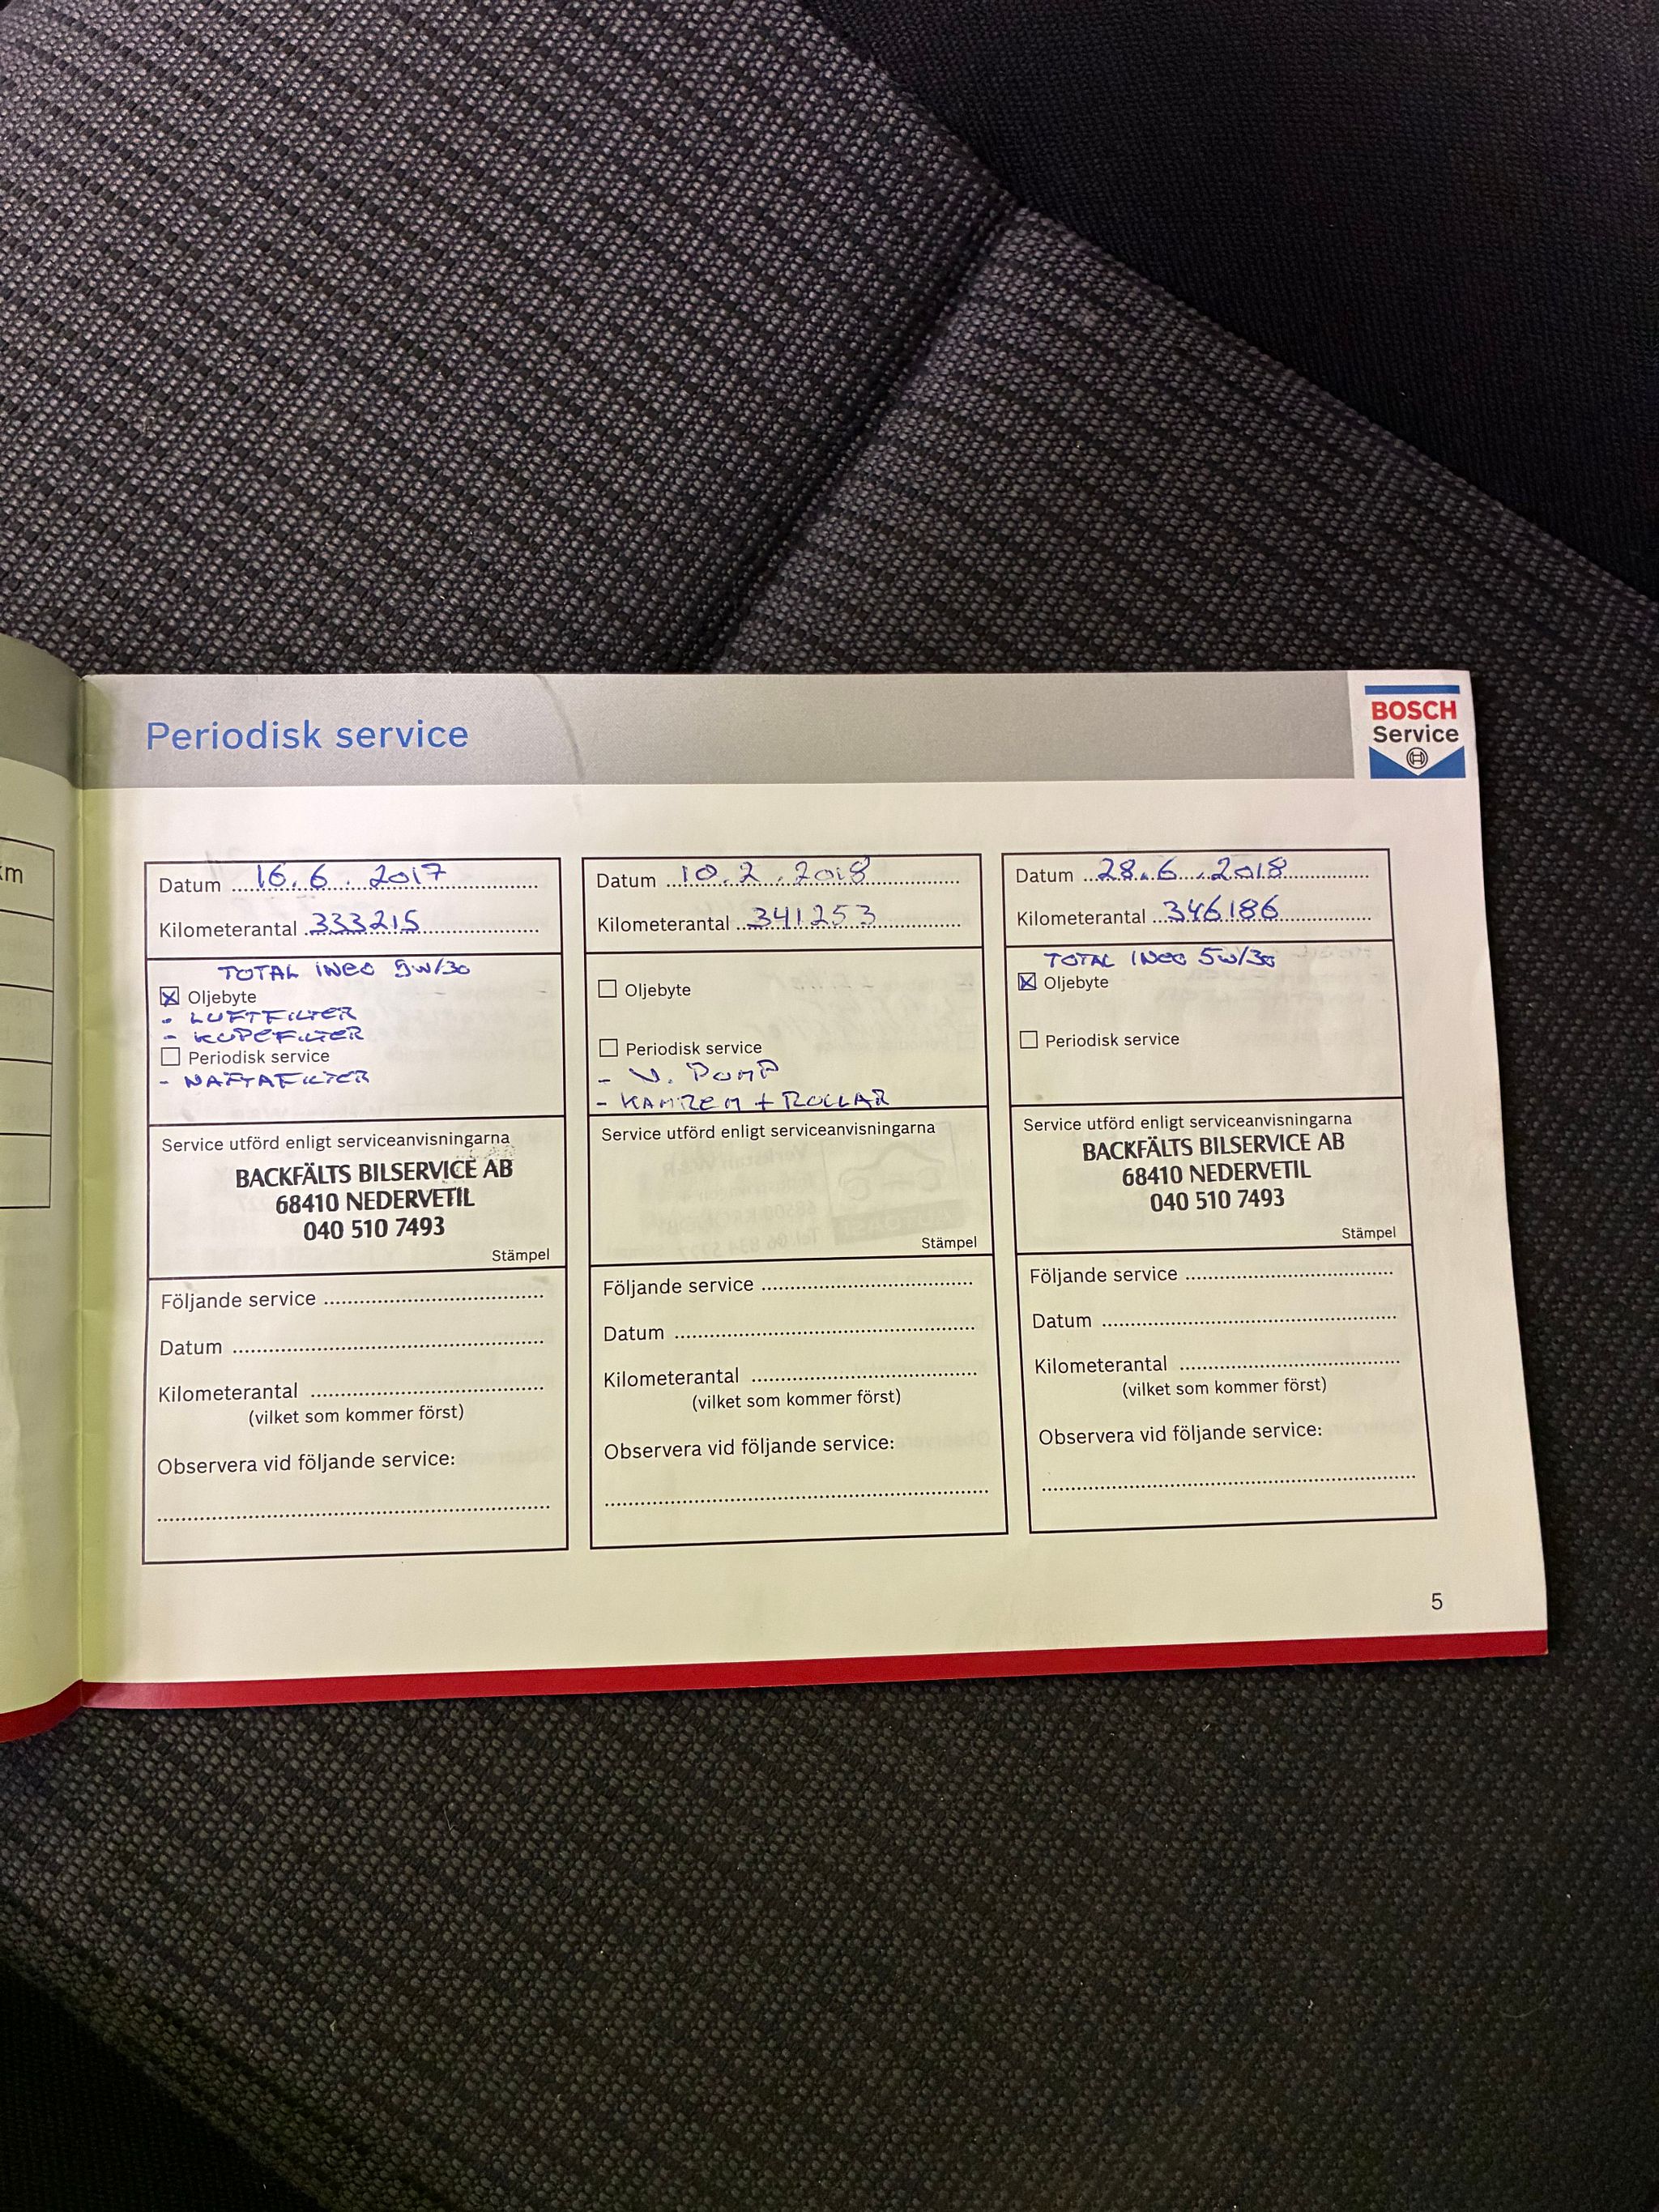 km
Periodisk service
BOSCH
Service
Datum 16.6.2017
Kilometerantal 333215
TOTAL INEO 5W/30
☒ Oljebyte
- LUFTFILTER
- KUPEFILTER
☐ Periodisk service
- NAFTAFILTER
Service utförd enligt serviceanvisningarna
BACKFÄLTS BILSERVICE AB
68410 NEDERVETIL
040 510 7493
Stämpel
Följande service
Datum
Kilometerantal
(vilket som kommer först)
Observera vid följande service:
Datum 10.2.2018
Kilometerantal 341253
☐ Oljebyte
☐ Periodisk service
- V. PUMP
- KAMREM + RULLAR
Service utförd enligt serviceanvisningarna
Stämpel
Följande service
Datum
Kilometerantal
(vilket som kommer först)
Observera vid följande service:
Datum 28.6.2018
Kilometerantal 346186
TOTAL INEO 5W/30
☒ Oljebyte
☐ Periodisk service
Service utförd enligt serviceanvisningarna
BACKFÄLTS BILSERVICE AB
68410 NEDERVETIL
040 510 7493
Stämpel
Följande service
Datum
Kilometerantal
(vilket som kommer först)
Observera vid följande service:
5